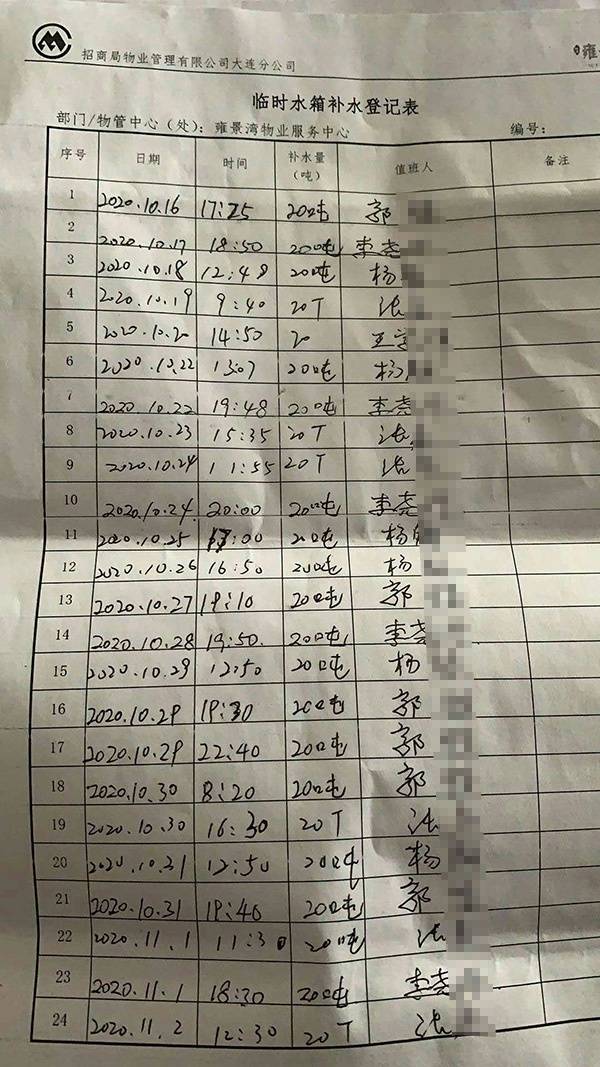 招商局物业管理有限公司大连分公司
雍
临时水箱补水登记表
部门/物管中心（处）：雍景湾物业服务中心 编号：
序号 日期 时间 补水量（吨） 值班人 备注
1 2020.10.16 17:25 20吨 郭
2 2020.10.17 18:50 20吨 李尧
3 2020.10.18 12:48 20吨 杨
4 2020.10.19 9:40 20T 张
5 2020.10.20 14:50 20 王
6 2020.10.22 13:07 20吨 杨
7 2020.10.22 19:48 20吨 李尧
8 2020.10.23 15:35 20T 张
9 2020.10.24 11:55 20T 张
10 2020.10.24 20:00 20吨 李尧
11 2020.10.25 :00 20吨 杨
12 2020.10.26 16:50 20吨 杨
13 2020.10.27 19:10 20吨 郭
14 2020.10.28 19:50 20吨 李尧
15 2020.10.29 12:50 20吨 杨
16 2020.10.29 19:30 20吨 郭
17 2020.10.29 22:40 20吨 郭
18 2020.10.30 8:20 20吨 郭
19 2020.10.30 16:30 20T 张
20 2020.10.31 12:50 20吨 杨
21 2020.10.31 19:40 20吨 郭
22 2020.11.1 11:30 20吨 张
23 2020.11.1 18:30 20吨 李尧
24 2020.11.2 12:30 20T 张